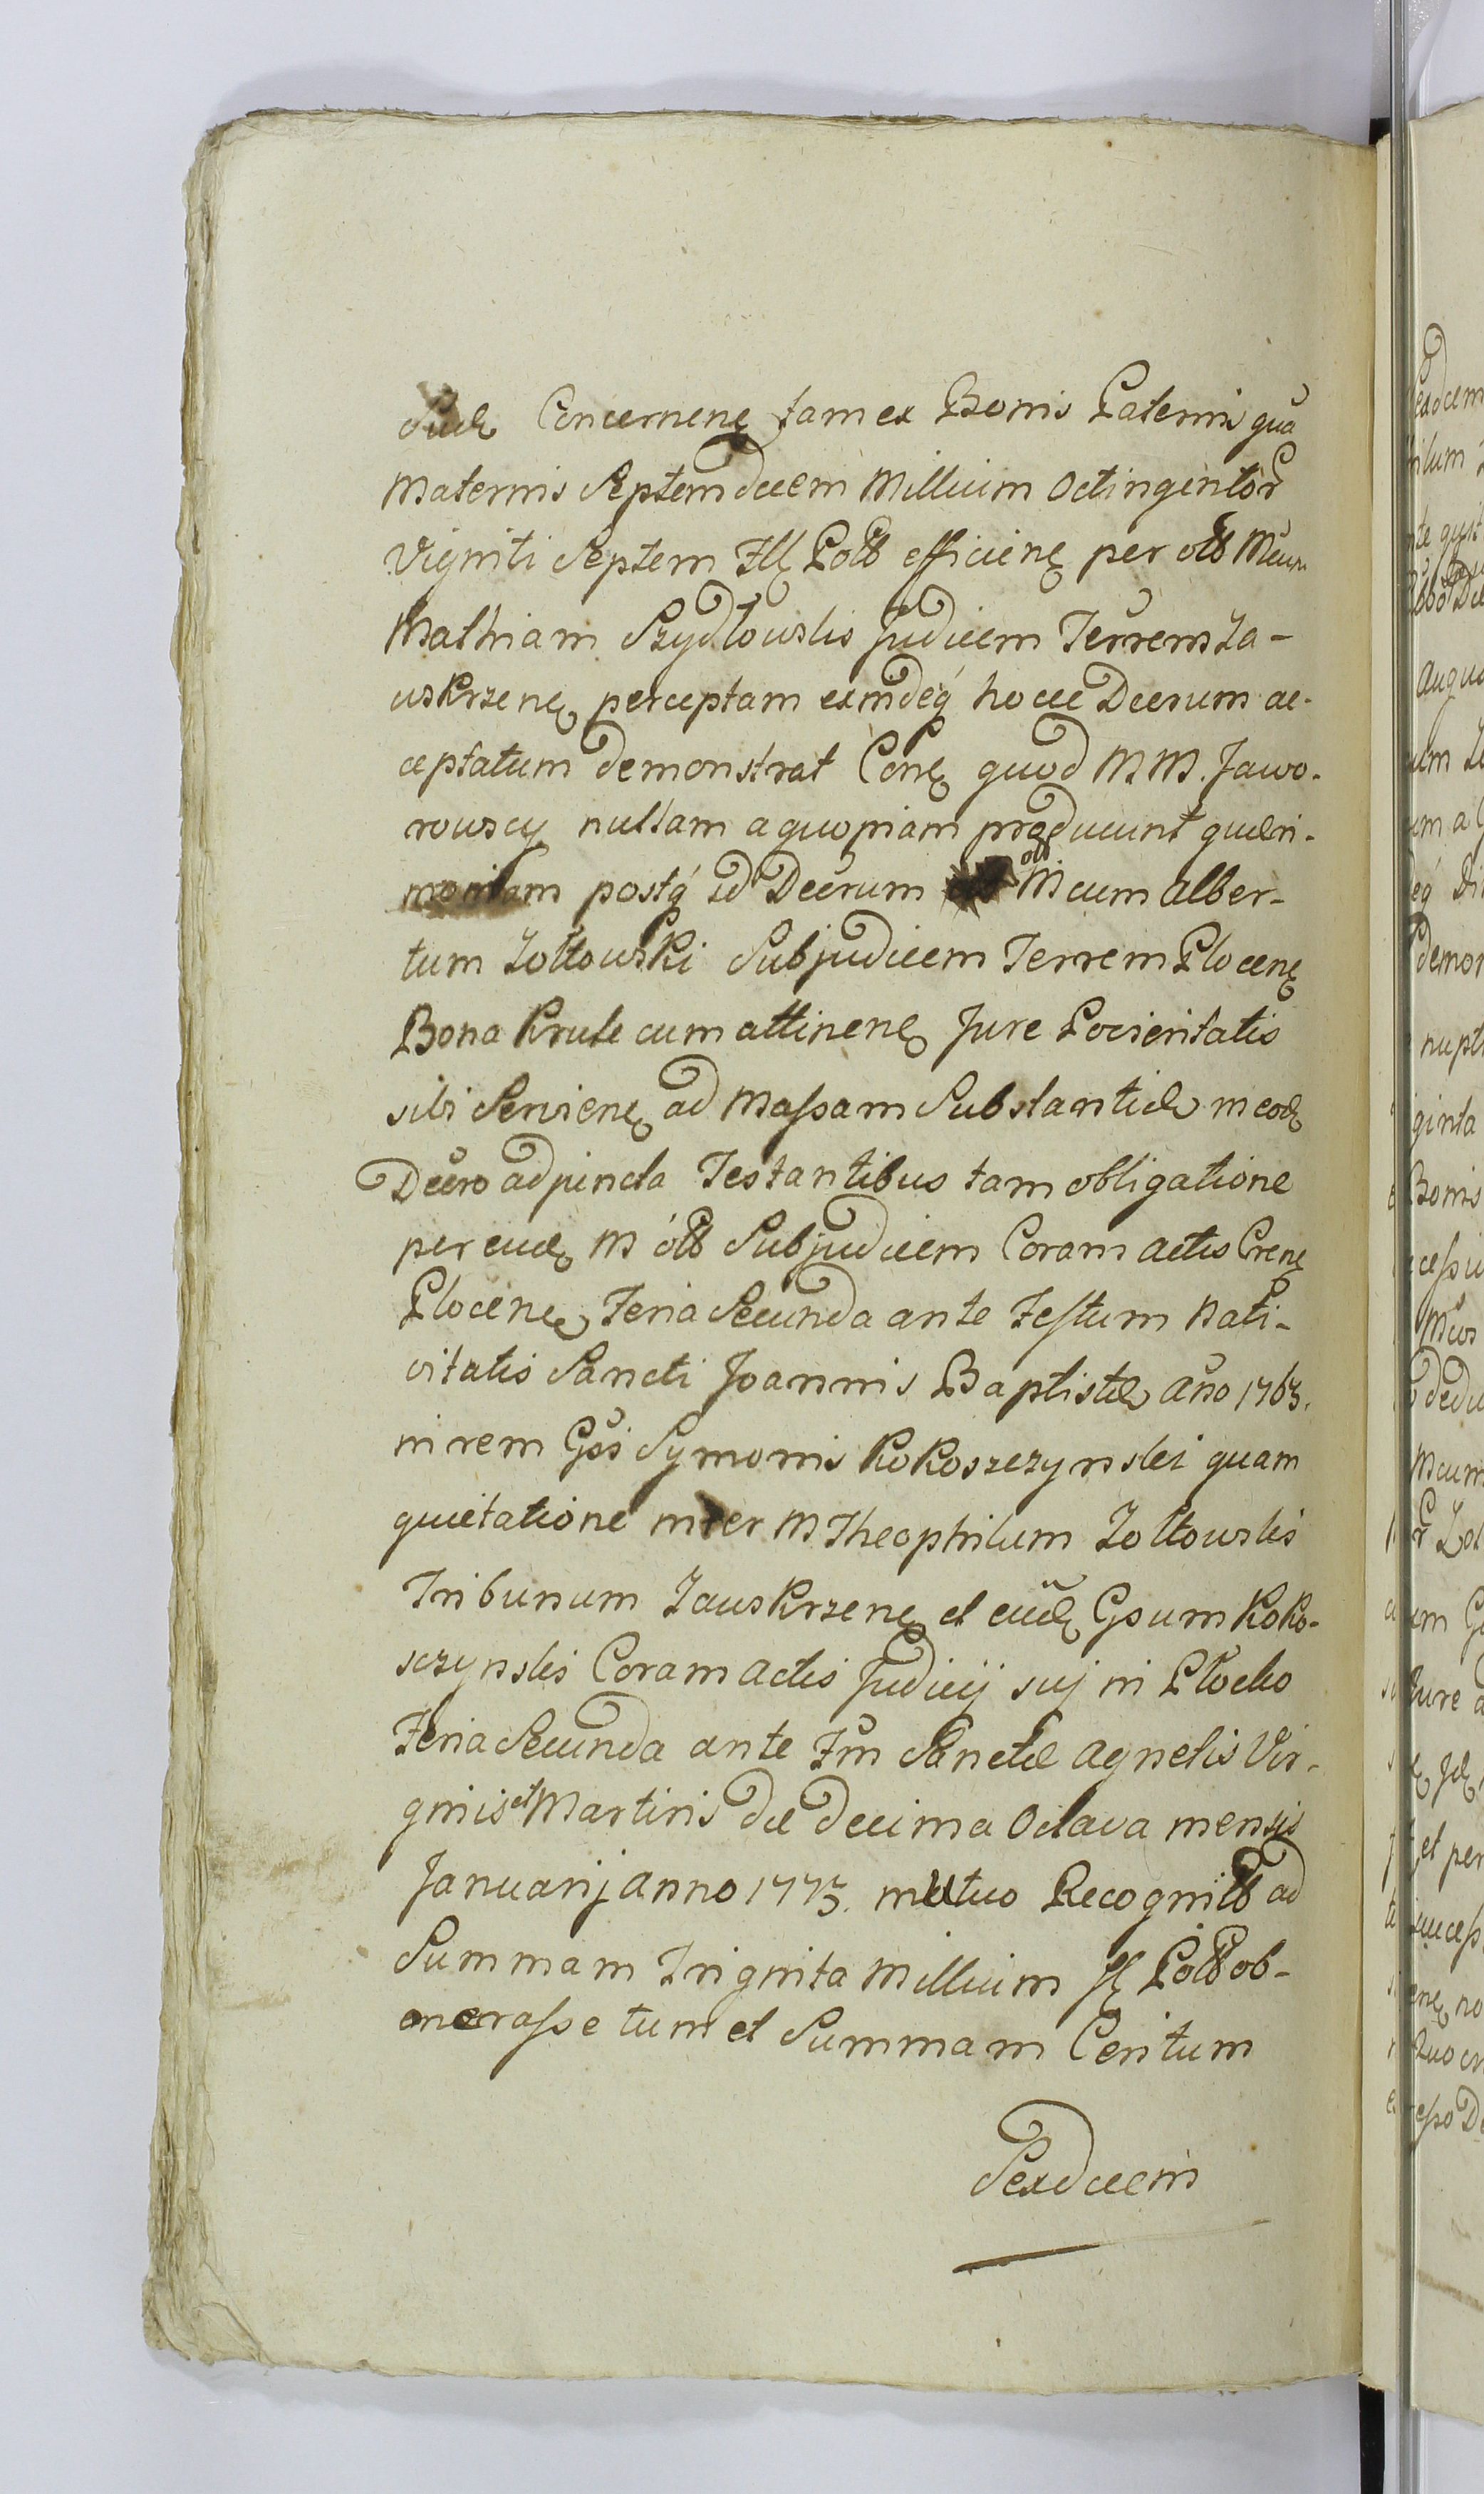 Suæ Concernenę tam ex Bonis Paternis qua
Maternis Septemdecem Millium Octingentor
Viginti Septem Fll Poll efficienę per oll Mcum
Mathiam Szydłowski Judicem Terrem Za-
wskrzenę perceptam exindeq́ hocce Dcerum ac-
ceptatum demonstrat Conę quod M.M. Jawo-
rowscy nullam a quopiam præducunt quæri-
moniam postq́ id Decrum oll Mcum Alber-
tum Zołtowski Subjudicem Terrem Plocenę
Bona Krule cum attinenę Jure Pocieritatis
sibi Servienę ad Massam Substantiæ in eodę
Decro adjuncta Testantibus tam obligatione
per eudę M oll Subjudicem Coram Actis Crenę
Plocenę Feria Secunda ante Festum Nati-
vitatis Sancti Joannis Baptistæ Año 1763.
in rem Gsi Symonis Kokoszczynski quam
quietatione inter M Theophilum Zołtowski
Tribunum Zawskrzenę et eudę Gsum Koko-
szczynski Coram Actis Judicij sui in Płocko
Feria Secunda ante Fm Sanctæ Agnetis Vir-
ginis et Martiris die decima Octava mensis
Januarij anno 1773. mutuo Recognit ad
Summam Triginta Millium fl Poll ob-
onerasse tum et Summam Centum
Sexdecem